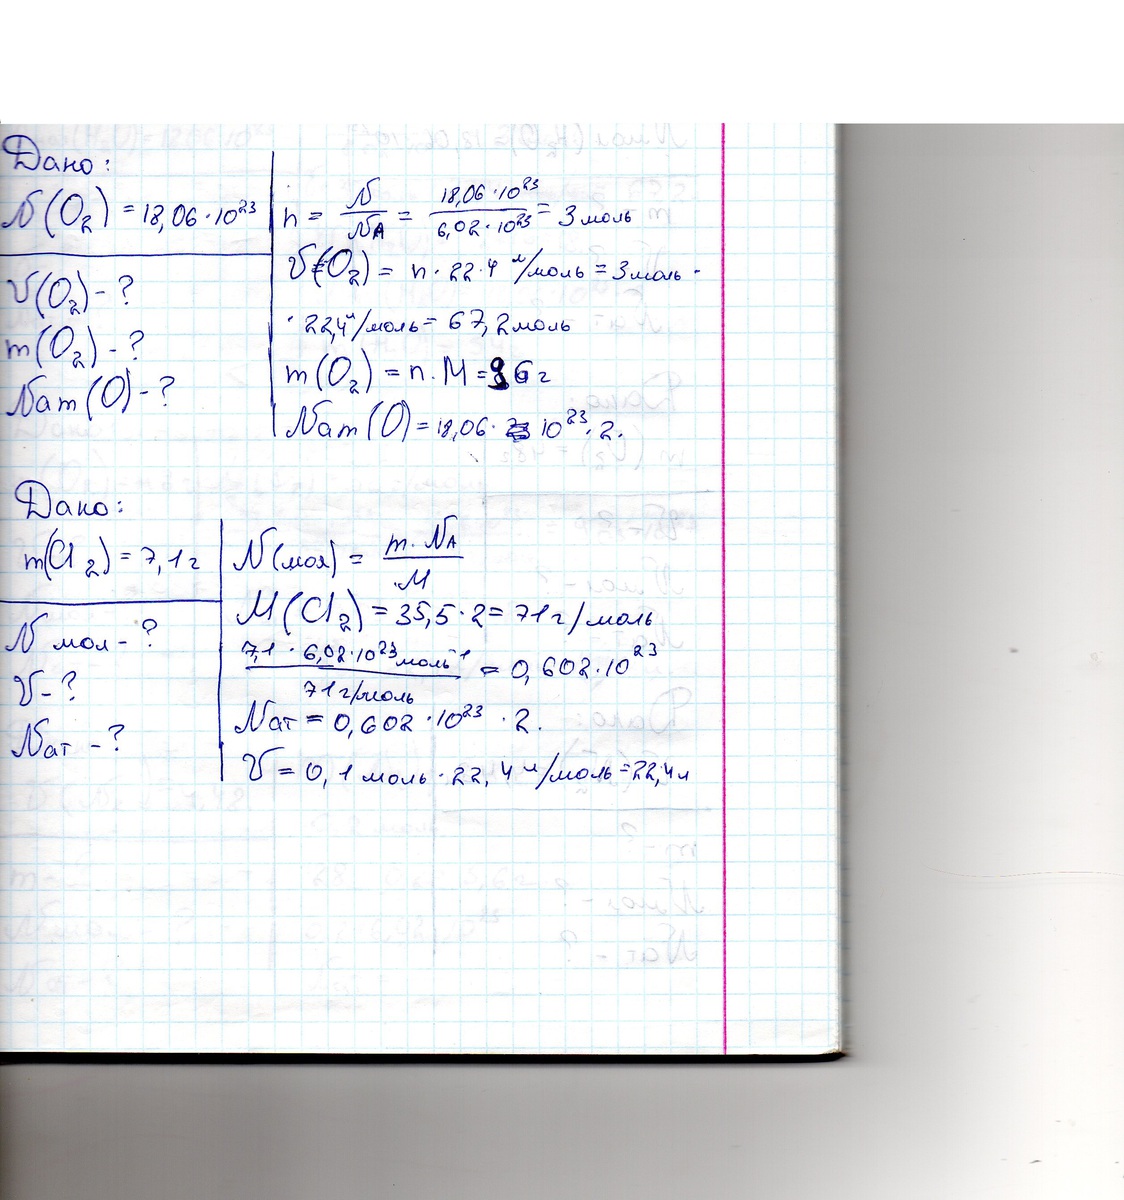 Дано:
N(O2) = 18,06·10^23
V(O2) - ?
m(O2) - ?
Nат(O) - ?
n = N/NA = 18,06·10^23 / 6,02·10^23 = 3 моль
V(O2) = n·22.4 л/моль = 3моль·
·22,4л/моль = 67,2моль
m(O2) = n.M = 96г
Nат(O) = 18,06·10^23·2.
Дано:
m(Cl2) = 7,1г
N мол - ?
V - ?
Nат - ?
N(мол) = m·NA / M
M(Cl2) = 35,5·2 = 71г/моль
7,1·6,02·10^23моль^-1 / 71г/моль = 0,602·10^23
Nат = 0,602·10^23·2.
V = 0,1моль·22,4л/моль = 22,4л